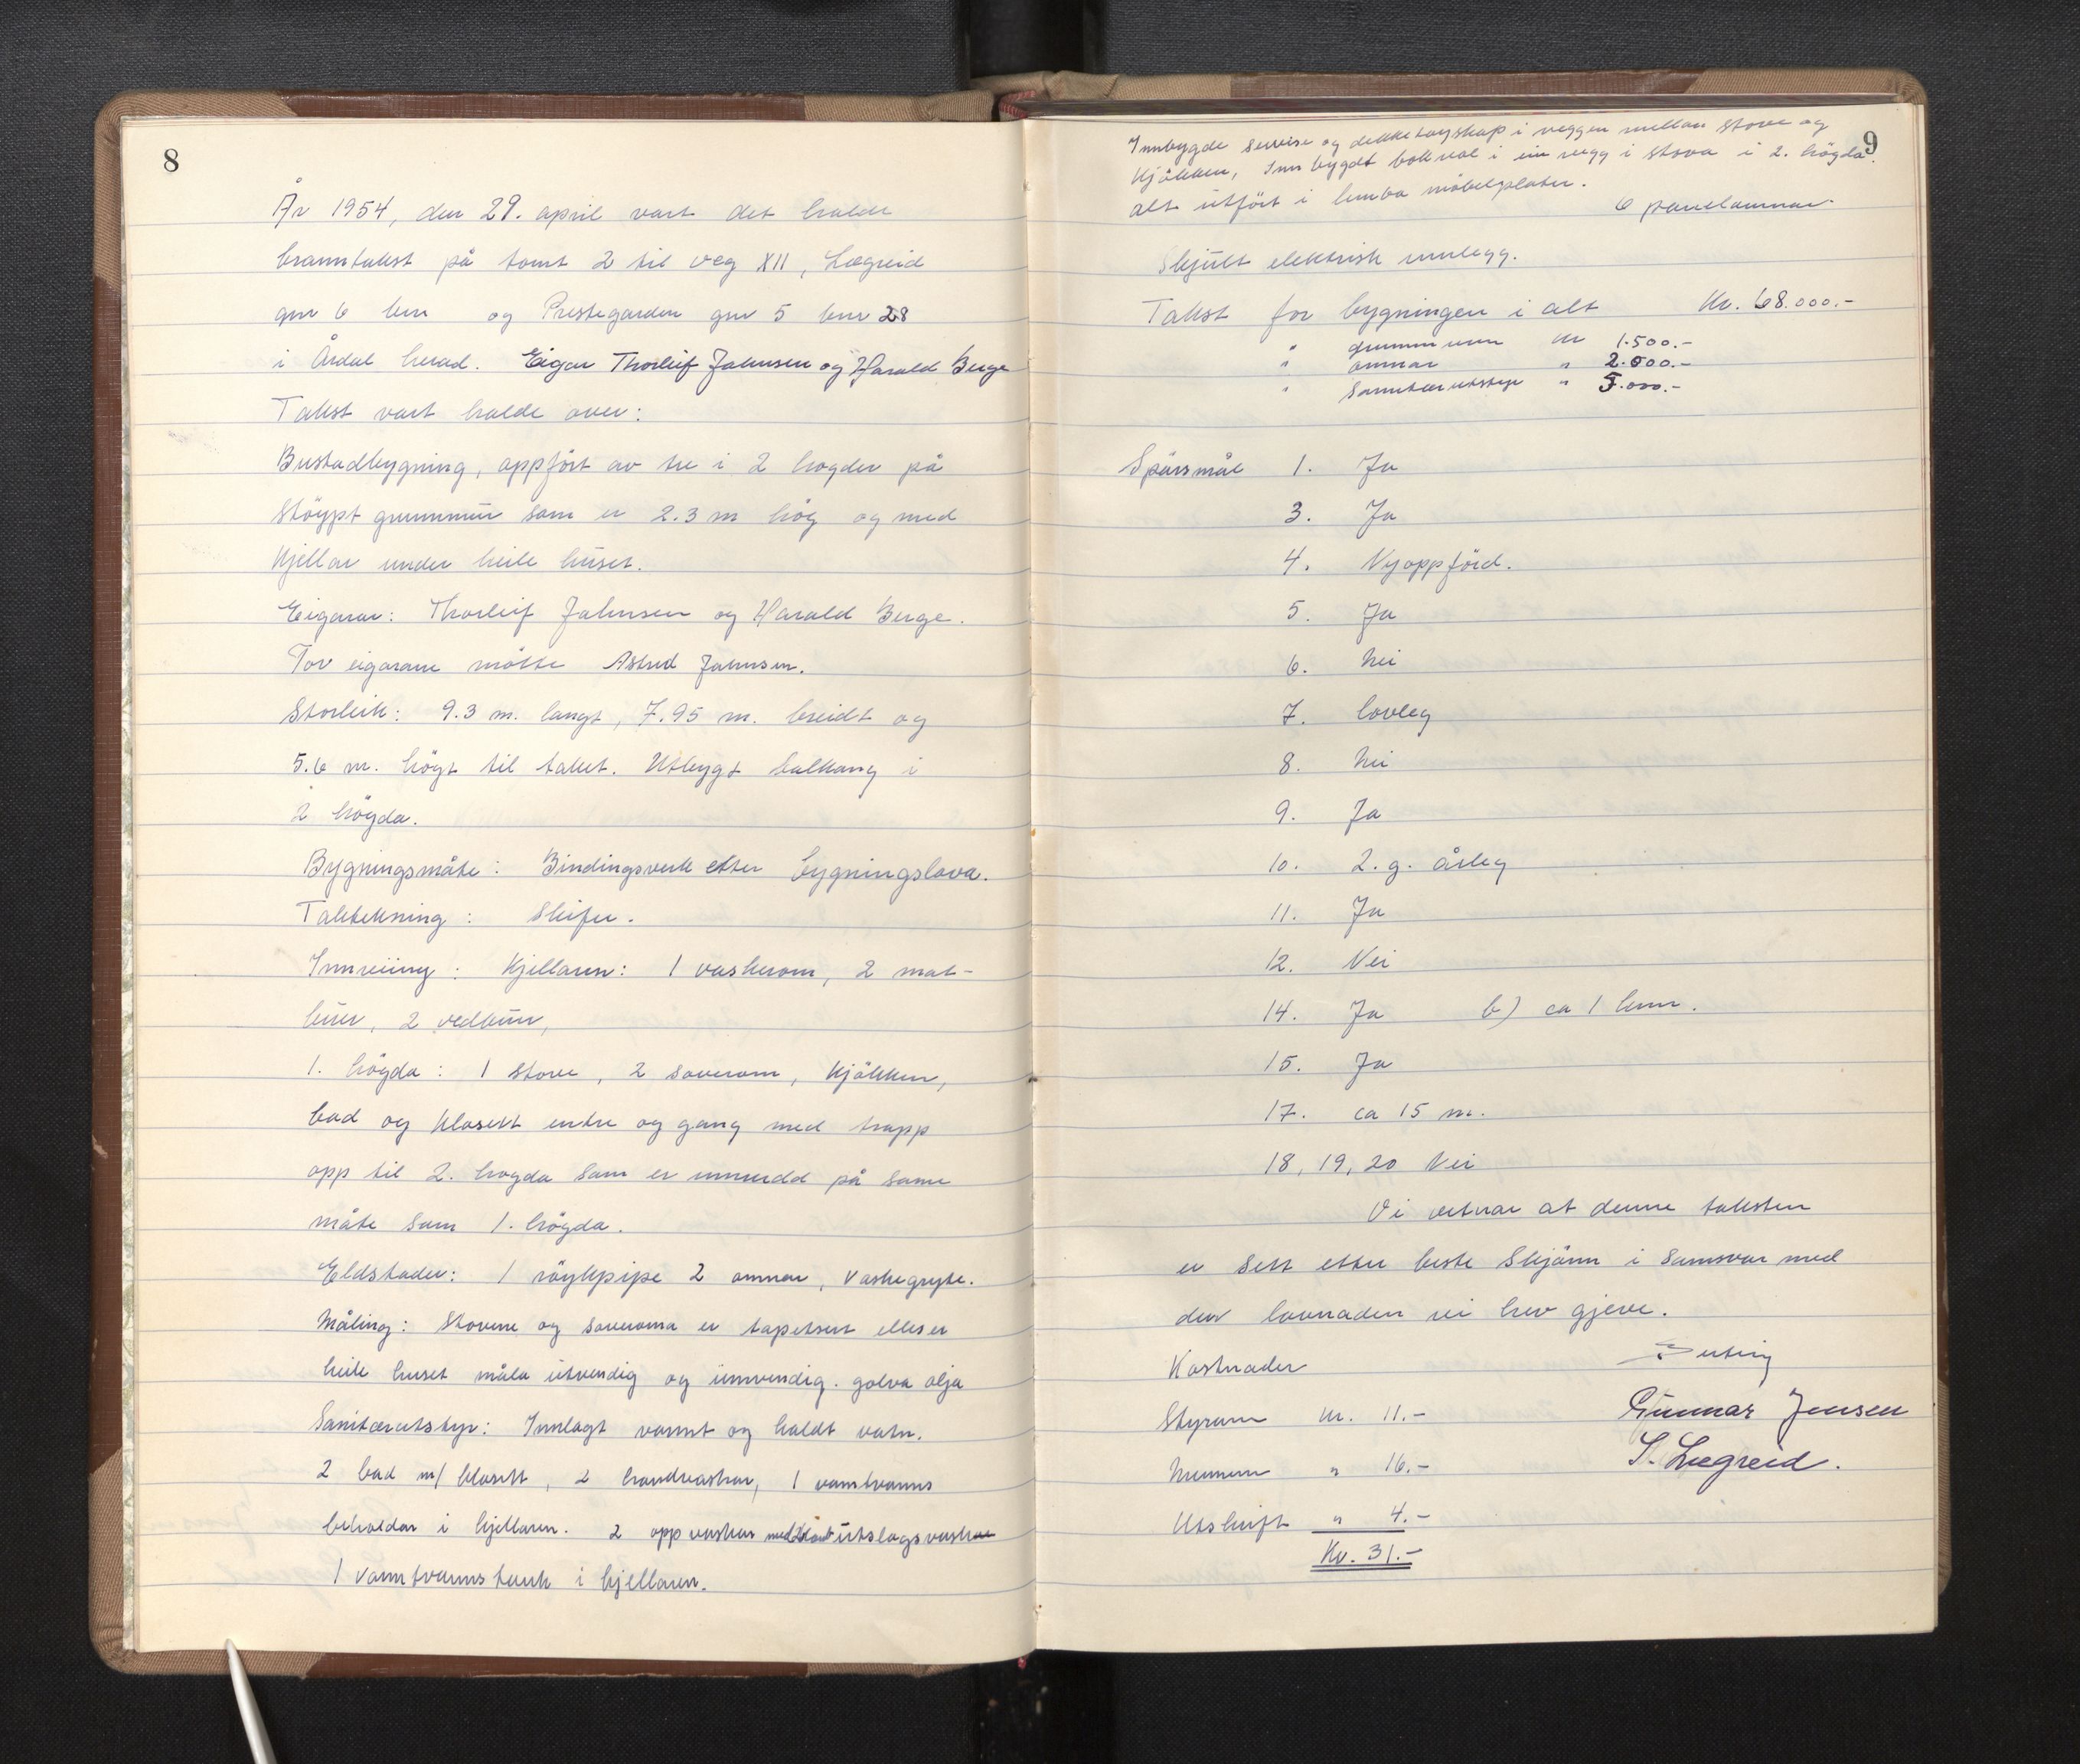 8
År 1954, den 29. april vart det halde
branntakst på tomt 2 til veg XII, Lægreid
gnr 6 bnr og Prestegarden gnr 5 bnr 28
i Årdal herad. Eigar Thorleif Jahnsen og Harald Berge
Takst vart halde over:
Bustadbygning, oppført av tre i 2 høgder på
støypt grunnmur som er 2.3 m høg og med
kjellar under heile huset.
Eigarar: Thorleif Jahnsen og Harald Berge.
For eigarane møtte Astrid Jahnsen.
Storleik: 9.3 m. langt, 7.95 m. breidt og
5.6 m. högt til taket. Utbygt balkong i
2 högda.
Bygningsmåte: Bindingsverk etter bygningslova.
Taktekning: Skifer.
Innreiing: Kjellaren: 1 vaskerom, 2 mat-
buer, 2 vedbuer,
1. högda: 1 stove, 2 soverom, kjökken,
bad og klosett entre og gang med trapp
opp til 2. høgda som er innreidd på same
måte som 1. högda.
Eldstader: 1 röykpipe 2 omnar, vaskegryte.
Måling: Stovene og soveroma er tapetsert elles er
heile huset måla utvendig og innvendig. golva olja
Sanitærutstyr: Innlagt varmt og kaldt vatn.
2 bad m/ klosett, 2 handvaskar, 1 varmtvanns
beholdar i kjellaren. 2 oppvaskar med utslagsvask
1 varmtvannstank i kjellaren.
9
Innbygde servise og dekketøyskap i veggen mellom stove og
kjökken, Innbygdt bokreol i ein vegg i stova i 2. högda.
alt utfört i limba möbelplater.
6 panelomnar.
Skjult elektrisk innlegg.
Takst for bygningen i alt Kr. 68.000.-
" grunnmuren kr 1.500.-
" omnar " 2.500.-
" Sanitærutstyr " 5.000.-
Spörsmål 1. Ja
3. Ja
4. Nyoppförd.
5. Ja
6. Nei
7. lovleg
8. Nei
9. Ja
10. 2. g. årleg
11. Ja
12. Nei
14. Ja b) ca 1 km.
15. Ja
17. ca 15 m.
18, 19, 20 Nei
Vi vitnar at denne taksten
er sett etter beste skjönn i samsvar med
den lovnaden vi hev gjeve.
Kostnader
Styraren kr. 11.- Gunnar Jensen
" 16.- S. Lægreid.
Utskrift " 4.-
Kr. 31.-